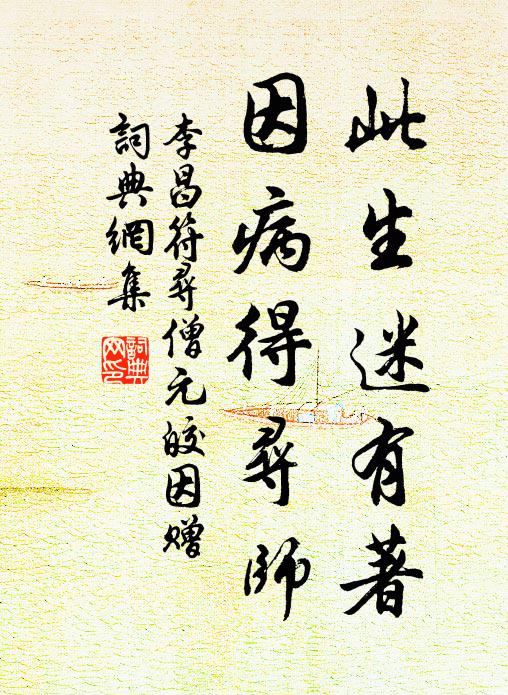 此生迷有著
因病得尋師
李昌符尋僧元皎因贈
詞典網集
詞典網印